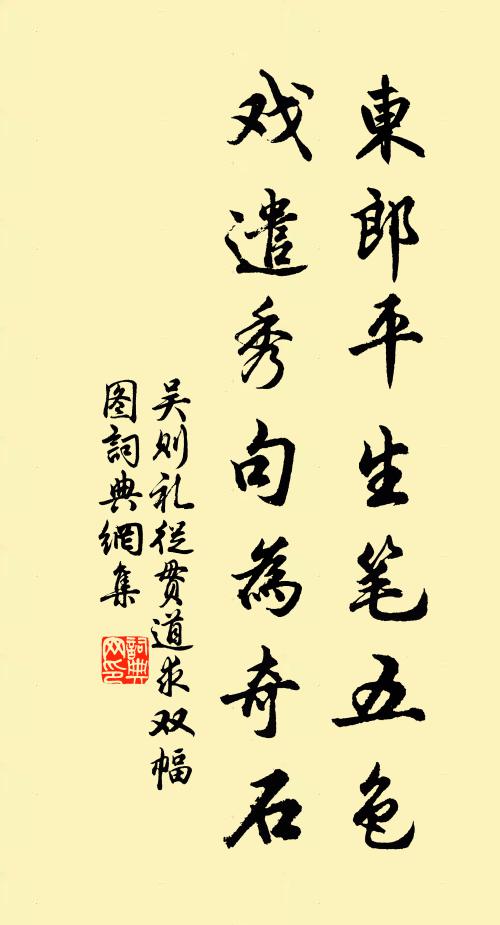 東郎平生笔五色
戏遣秀句為奇石
吴则礼從貫道求双幅
图詞典網集
詞典
网印